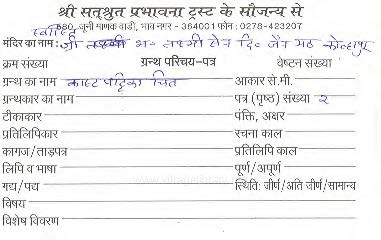 श्री सत्श्रुत प्रभावना ट्रस्ट के सौजन्य से
580, जूनी माणक वाडी, भाव नगर - 364001 फोन : 0278-423207
मंदिर का नाम : श्री लक्ष्मी सेन दि॰ जैन मठ कोल्हापुर
क्रम संख्या ग्रन्थ परिचय-पत्र वेष्टन संख्या
ग्रन्थ का नाम काष्ट पट्टिका चित्र आकार से.मी.
ग्रन्थकार का नाम पत्र (पृष्ठ) संख्या २
टीकाकार पंक्ति, अक्षर
प्रतिलिपिकार रचना काल
कागज/ताड़पत्र प्रतिलिपि काल
लिपि व भाषा पूर्ण/अपूर्ण
गद्य/पद्य स्थिति: जीर्ण/अति जीर्ण/सामान्य
विषय
विशेष विवरण